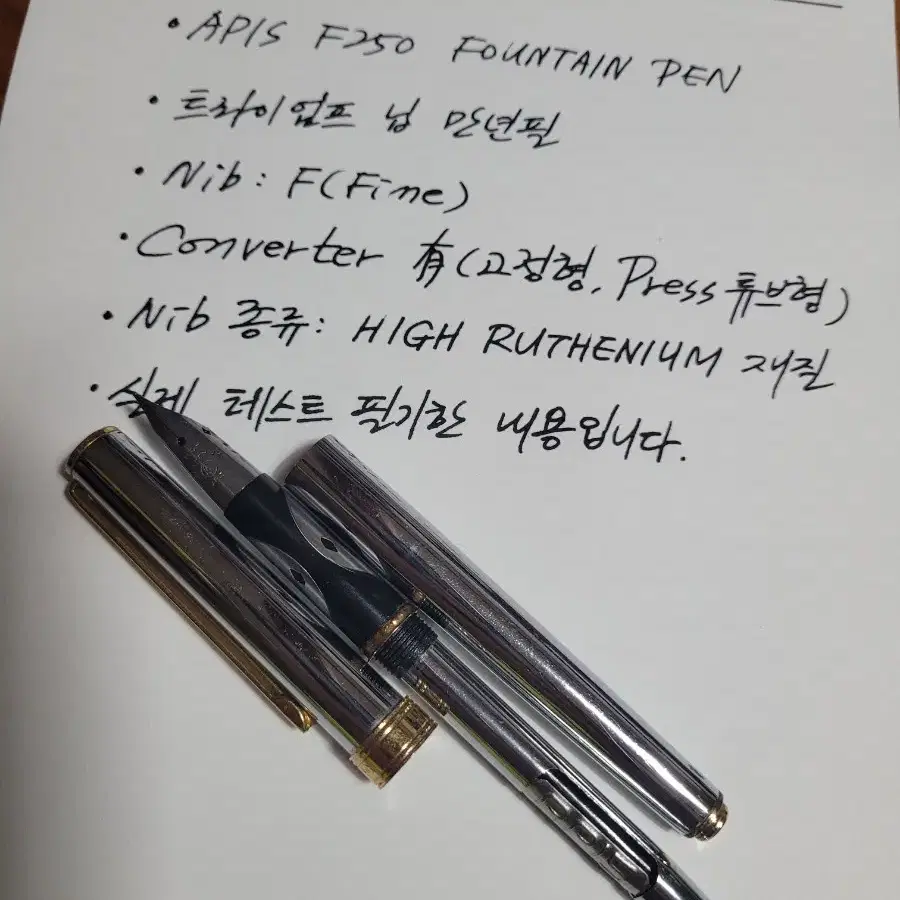 • APIS F250 FOUNTAIN PEN
• 트라이엄프 닙 만년필
• Nib: F(Fine)
• Converter 有(고정형, Press튜브형)
• Nib 종류: HIGH RUTHENIUM 재질
• 실제 테스트 필기한 내용입니다.